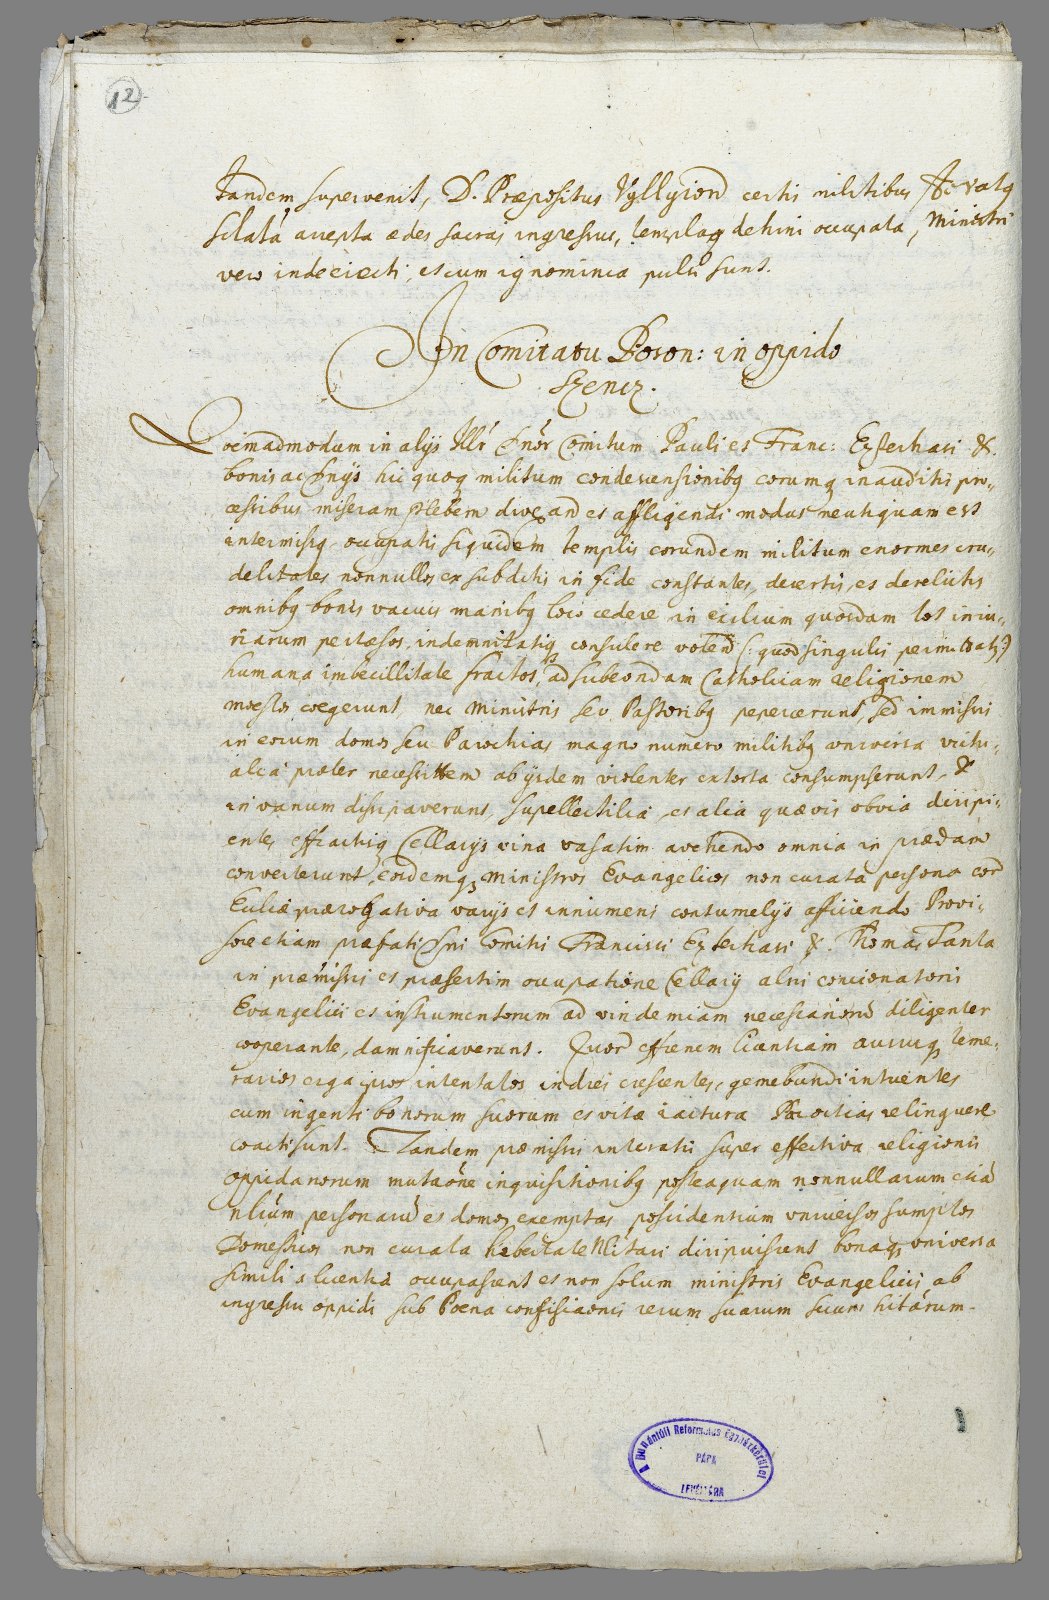 12
Tandem supervenit, D. Præpositus Vyllyiond certis militibus
sclata arrepta ædes sacras ingressus, templaq dehinc occupata, Ministri
vero inde eiecti, et cum ignominia pulsi sunt.
In Comitatu Poson: in oppido
Szencz.
Quemadmodum in alijs Illr Dnor Comitum Pauli et Franc: Ezterhasi &.
bonis ac Dnijs hic quoq militum condescensionibq eorumq inauditis pro„
cessibus miseram plebem divexand et affligendi modus neutiquam est
intermissq, occupatis siquidem templis eorundem militum enormes cru„
delitates nonnullos ex subditis in fide constantes, desertis, et derelictis
omnibq bonis vacuis manibq loco cedere in exilium quosdam tot iniu„
riarum pertæsos, indemnitatiq consulere volend (: quod singulis permittatq:)
humana imbecillitate fractos, ad subeondam Catholicam religionem
moestos coegerunt, nec Ministris seu Pastoribq pepercerunt, sed immissis
in eorum domos seu Parochias magno numero militibq universa victu„
alia præter necessittem ab ijsdem violenter extorta consumpserunt, &
in vanum dissipaverunt, supellectilia et alia quævis obvia diripi„
entes effractisq Cellarijs vina vasatim avehendo omnia in prædam
converterunt, eosdemq Ministros Evangelicos non curata persona eor
Ecliæ prærogativa varijs et innumeris contumelijs afficiendo Provi„
sore etiam præfati Dni Comitis Francisci Ezterhasi &. Thoma Tanta
in præmissis et præsertim occupatione Cellarij alni concionatoris
Evangelici et instrumentorum ad vindemiam necessariord diligenter
cooperante, damnificaverunt. Quor effrenem licentiam aususq teme„
rarios erga ipsos intentatos indies crescentes, gemebundi intuentes
cum ingenti bonorum suorum et vitæ iactura Parochias relinquere
coacti sunt. Tandem præmissis iteratis super effectiva religionis
oppidanorum mutaone inquisitionibq posteaquam nonnullarum etia
nlium personaru et domos exemptas possidentium universos sumptos
Domesticos non curata libertate Nlitari diripuissent bonaq universa
simili licentia occupassent et non solum ministris Evangelicis ab
ingressu oppidi sub Poena confiscaonis rerum suarum
A Dunántúli Református Egyházkerület
PÁPA
LEVÉLTÁRA